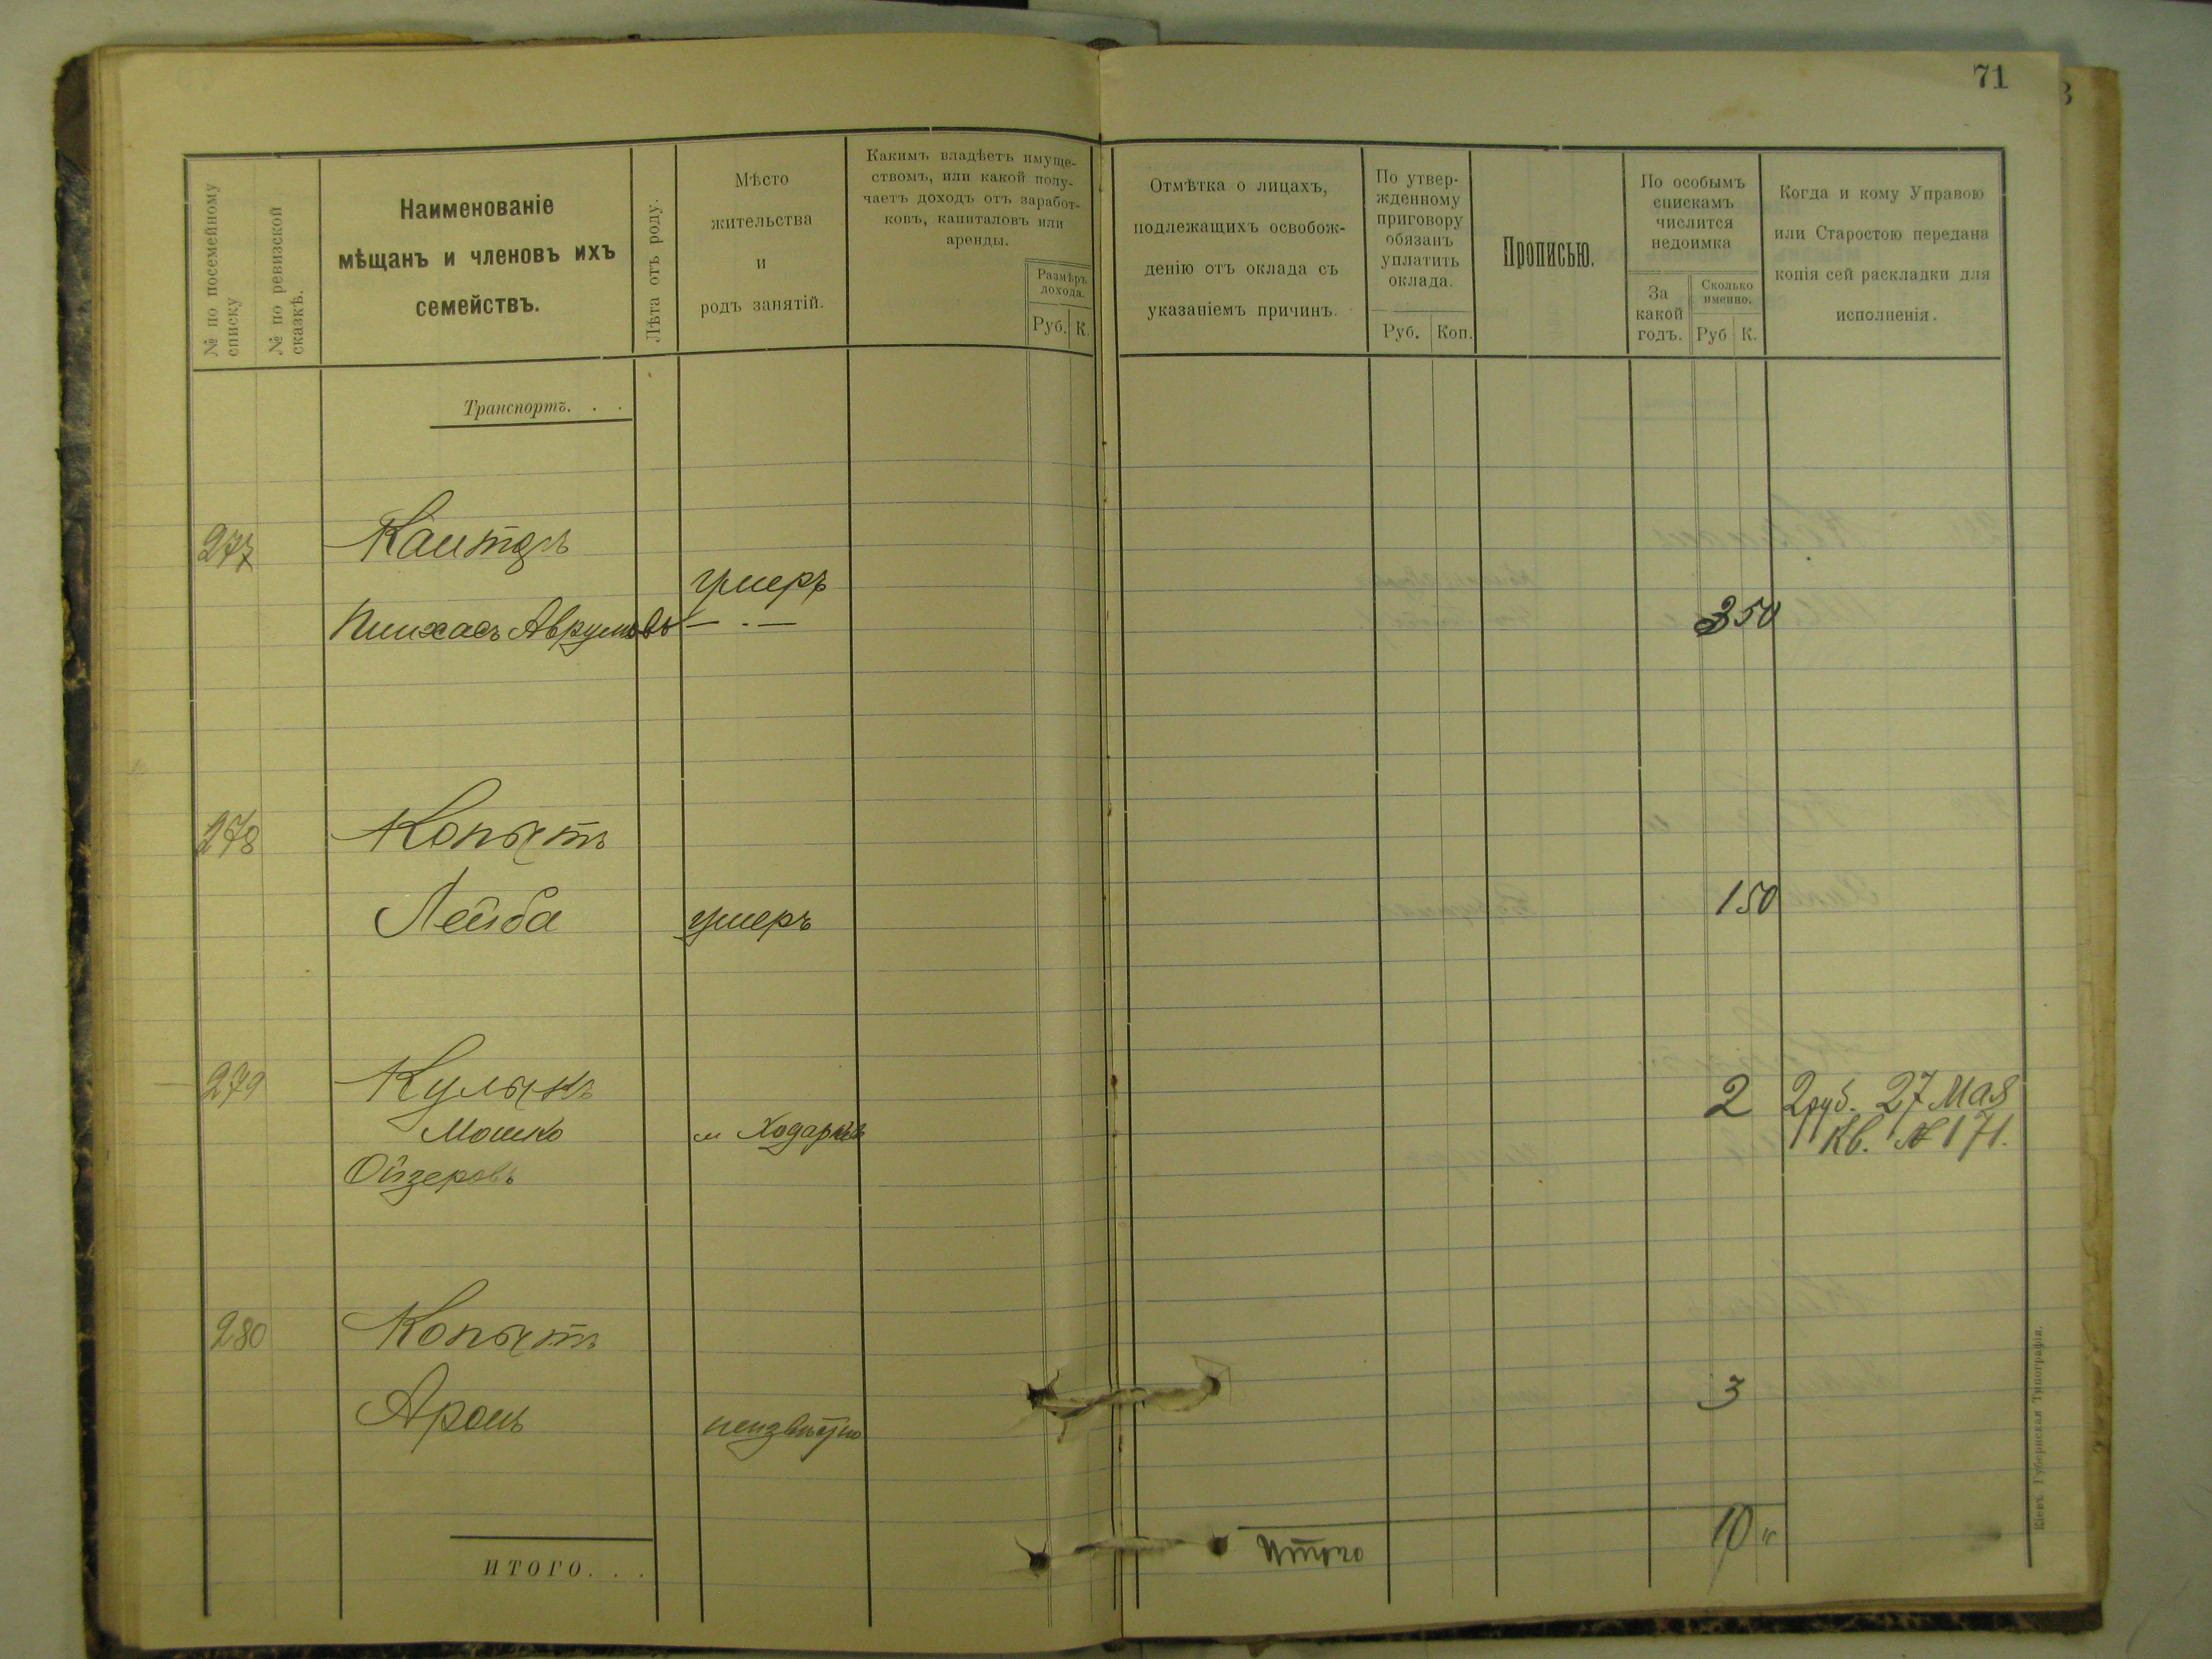 71
№ по посемейному списку
№ по ревизской сказкѣ.
Наименованіе
мѣщанъ и членовъ ихъ
семействъ.
Лѣта отъ роду.
Мѣсто
жительства
и
родъ занятій.
Какимъ владѣетъ имуще-
ствомъ, или какой полу-
чаетъ доходъ отъ заработ-
ковъ, капиталовъ или
аренды.
Размѣръ
дохода.
Руб. К.
Отмѣтка о лицахъ,
подлежащихъ освобож-
денію отъ оклада съ
указаніемъ причинъ.
По утвер-
жденному
приговору
обязанъ
уплатить
оклада.
Руб. Коп.
Прописью.
По особымъ
спискамъ
числится
недоимка
За
какой
годъ.
Сколько
именно.
Руб К.
Когда и кому Управою
или Старостою передана
копія сей раскладки для
исполненія.
Транспортъ. . .
277 Канторъ
умеръ
Пинхасъ Аврумовъ — . — 3 50
278 Копытъ
Лейба умеръ 1 50
279 Кулыкъ 2 2 руб. 27 Мая
Мошко м Ходарковъ Кв. № 171.
Ойзеровъ
280 Копытъ
Аронъ неизвѣстно 3
Итого 10 "
ИТОГО. . .
Кіевъ. Губернская Типографія.